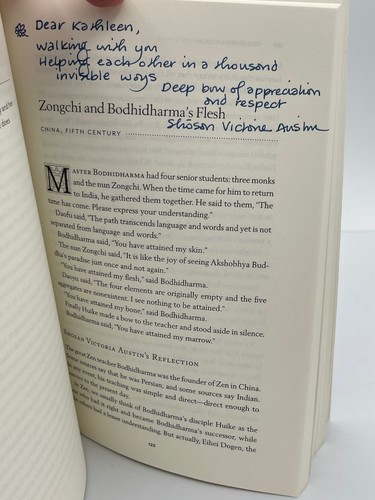 Dear Kathleen,
walking with you
Helping each other in a thousand
invisible ways
Deep bow of appreciation
and respect
Shōsan Victoria Austin
Zongchi and Bodhidharma's Flesh
CHINA, FIFTH CENTURY
MASTER BODHIDHARMA had four senior students: three monks
and the nun Zongchi. When the time came for him to return
to India, he gathered them together. He said to them, "The
time has come. Please express your understanding."
Daofu said, "The path transcends language and words and yet is not
separated from language and words."
Bodhidharma said, "You have attained my skin."
The nun Zongchi said, "It is like the joy of seeing Akshobhya Bud-
dha's paradise just once and not again."
"You have attained my flesh," said Bodhidharma.
Daoyu said, "The four elements are originally empty and the five
aggregates are nonexistent. I see nothing to be attained."
"You have attained my bone," said Bodhidharma.
Finally Huike made a bow to the teacher and stood aside in silence.
Bodhidharma said, "You have attained my marrow."
SHOSAN VICTORIA AUSTIN'S REFLECTION
The great Zen teacher Bodhidharma was the founder of Zen in China.
Some sources say that he was Persian, and some sources say Indian.
event, his teaching was simple and direct—direct enough to
to the present day.
In Zen, we usually think of Bodhidharma's disciple Huike as the
who had it right and became Bodhidharma's successor, while
others had a lesser understanding. But actually, Eihei Dogen, the